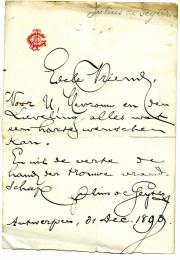 Julius de Geyter
Edele Vriend,
Voor U, Mevrouw en den
Lieveling alles wat
een harte wenschen
kan.
En uit de verte de
hand der trouwe vriend-
schap
Julius de Geyter
Antwerpen, 31 Dec. 1890.